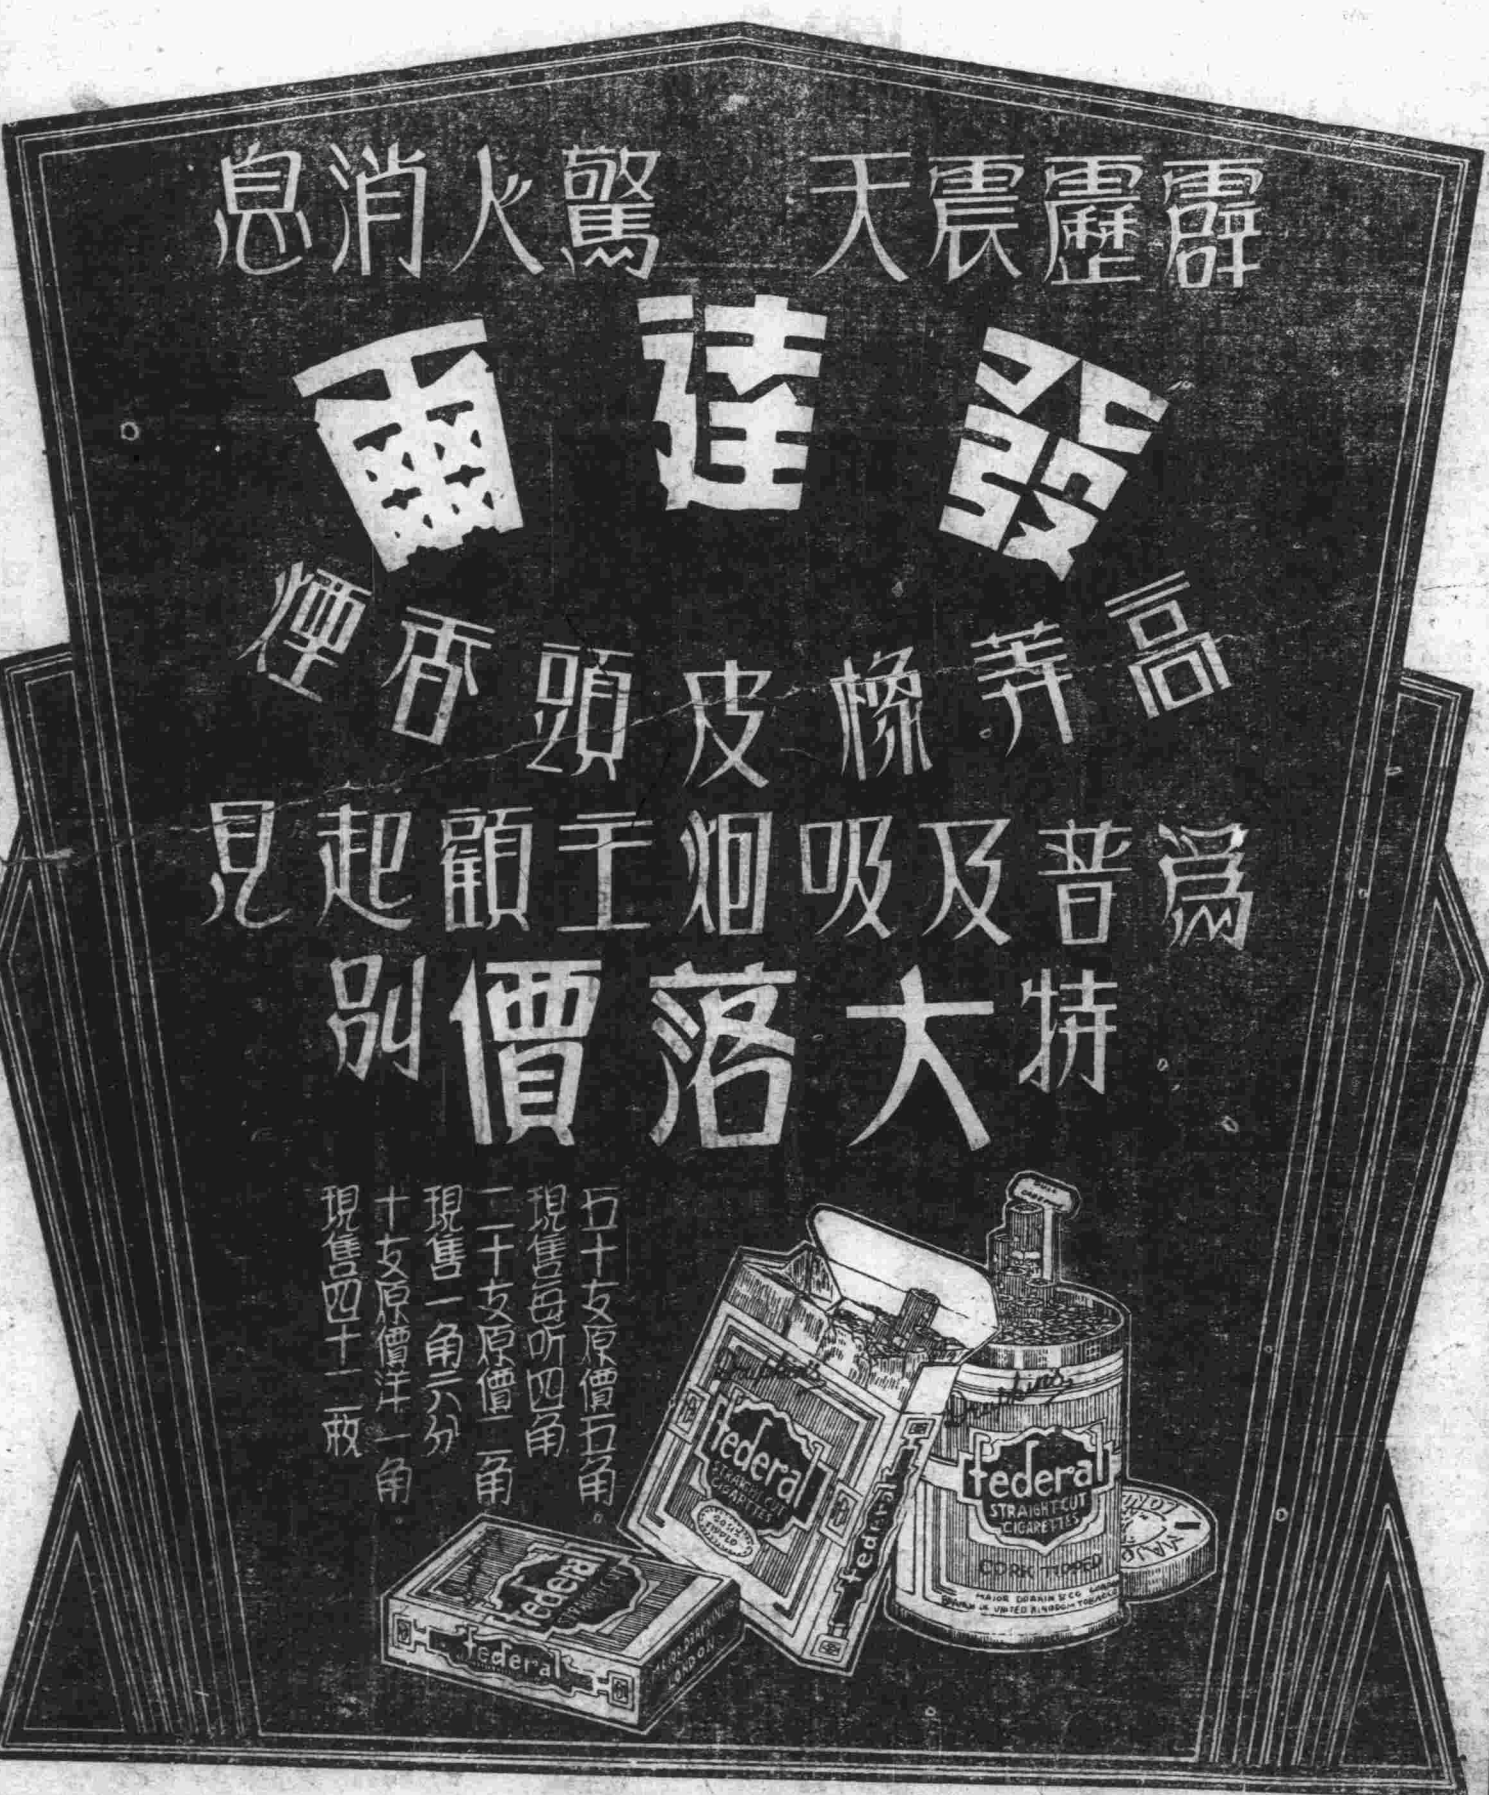 霹靂震天 驚人消息
發達爾
高等橡皮頭香煙
爲普及吸烟主顧起見
特別大落價
五十支原價五角。
現售每听四角
二十支原價二角
現售一角六分
十支原價洋一角。
現售四十二枚
federal
STRAIGHT CUT
CIGARETTES
federal
federal
STRAIGHT CUT
CIGARETTES
CORK TIPPED
MAJOR DRAKIN & CO
federal
federal
LONDON